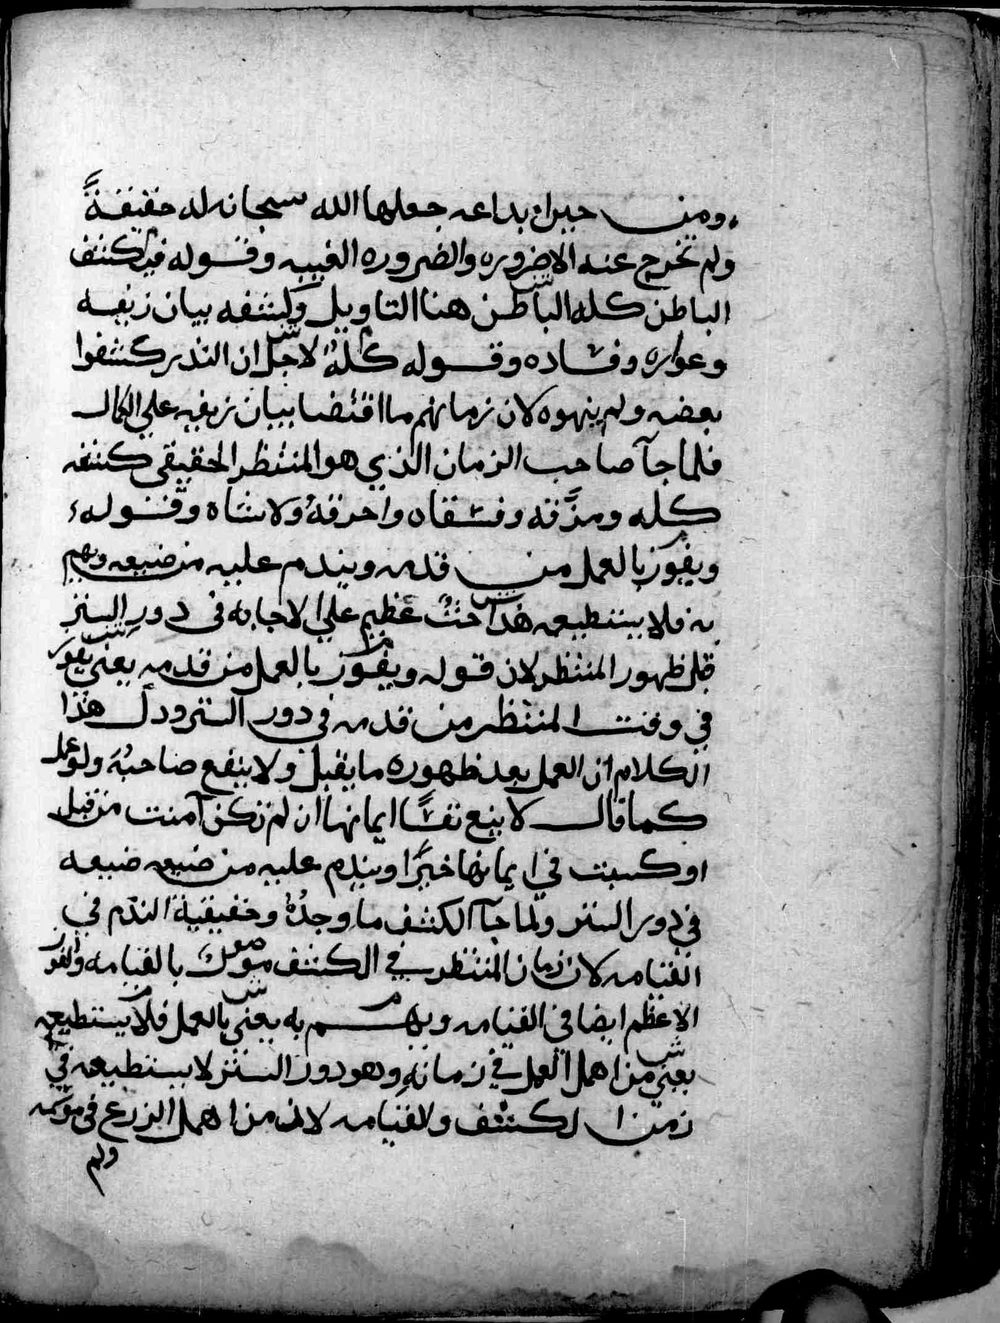 ومن حيز ابداعه جعلها الله سبحانه له حقيقةً
ولم تخرج عنه الا ضروره والضروره الغيبيه وقوله فيكشف
الباطن كله الباطن هنا التاويل وكشفه بيان زيفه
وعواره وفساده وقوله كلهُ لاجل ان النذر كشفوا
بعضه ولم ينهوه لان زمانهم ما اقتضا بيان زيفه علي الكمال
فلما جآ صاحب الزمان الذي هو المنتظر الحقيقي كشفه
كله ومزَّقه وفسقاه واحرقهُ ولاشاه وقوله
ويفوز بالعمل من قدمه ويندم عليه من ضيعه ويهم
به فلا يستطيعه هذا حثٌ عظيم علي الاجابه في دور الستر
قبل ظهور المنتظر لان قوله ويفوز بالعمل من قدمه يعني يفوز
في وقت المنتظر من قدمه في دور الستر ودل هذا
الكلام ان العمل بعد ظهوره ما يقبل ولا ينفع صاحبهُ ولو عمل
كما قال لا ينفع نفسًا ايمانها ان لم تكن آمنت من قبل
او كسبت في ايمانها خيرًا ويندم عليه من ضيعه ضيعه
في دور الستر ولما جآ الكشف ما وجدهُ وحقيقية الندم في
القيامه لان زمان المنتظر في الكشف بالقيامه والفوز
الاعظم ايضا في القيامه ويهم به يعني بالعمل فلا يستطيعه
يعني من اهمل العمل في زمانه وهو دور الستر لا يستطيعه في
زمن الكشف والقيامه لان من اهمل الزرع في موسمه
ولم